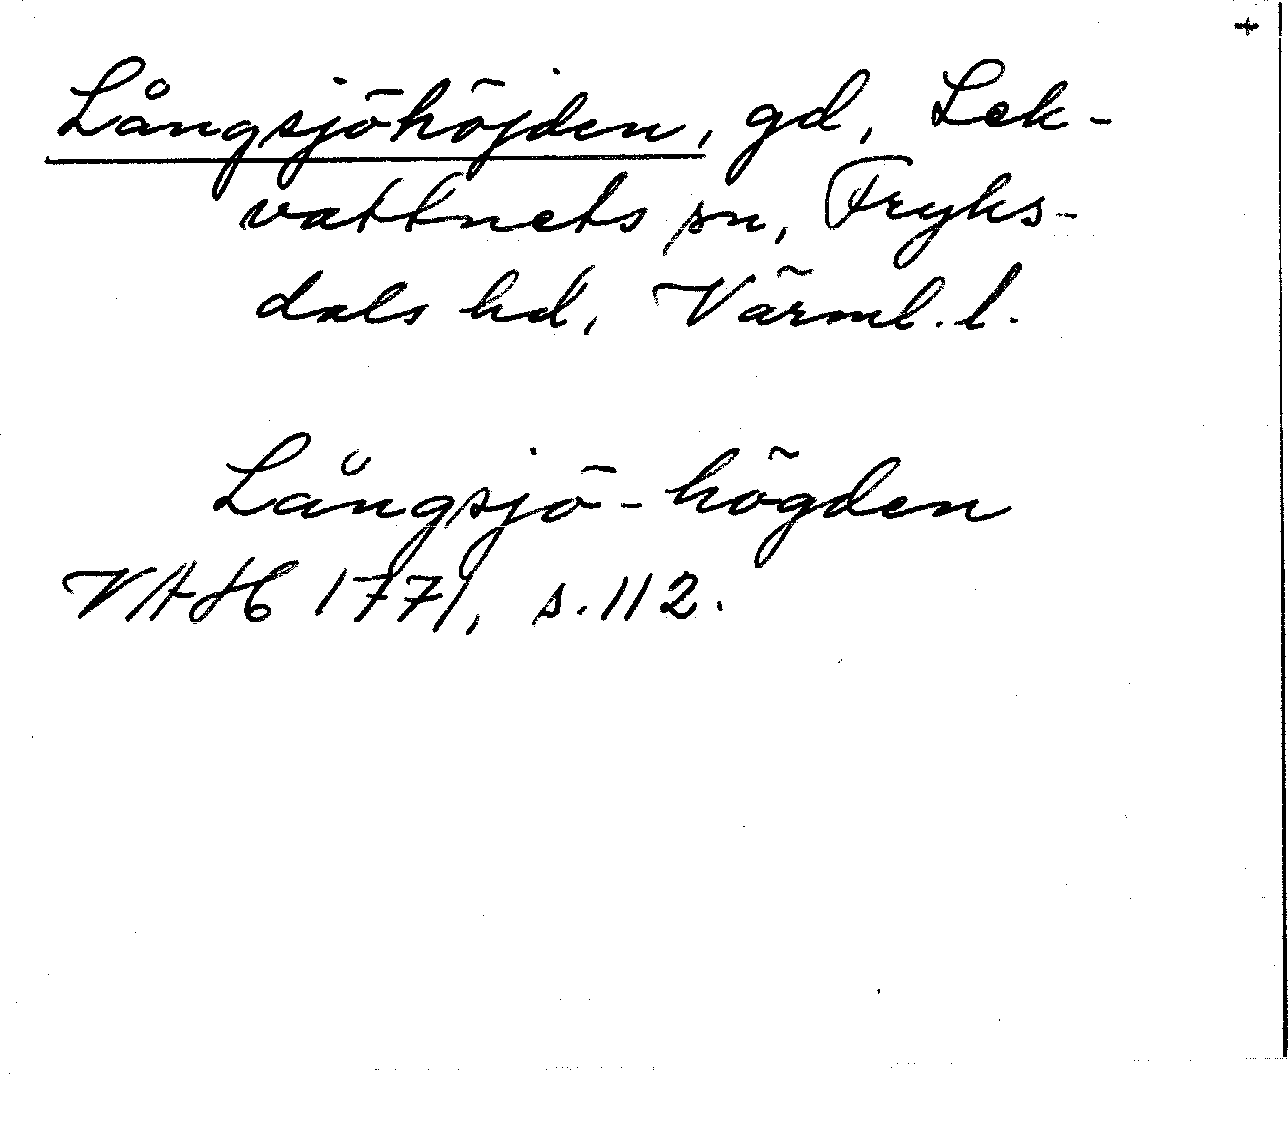 +
Långsjöhöjden, gd, Lek-
vattnets sn, Fryks-
dals hd, Värml. l.
Långsjö-högden
VAH 1771, s. 112.